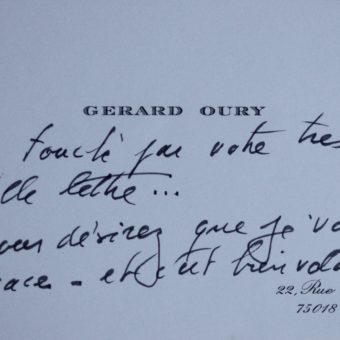 GERARD OURY
touché par votre très
lle lettre...
vous désirez que je vo
- et c'est bien volo
22, Rue
75018